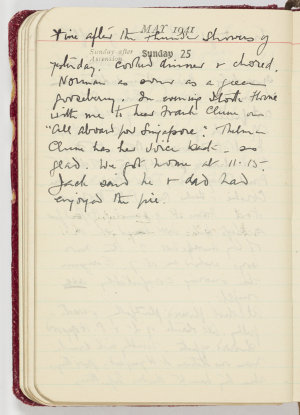 MAY 1941
Sunday after
Ascension
Sunday 25
Fine after the thunder showers of
yesterday. Cooked dinner & chored.
Norman as sour as a green
gooseberry. In evening
with me to hear Frank Clune on
"All aboard for Singapore". Thelma
Clune has her voice back - so
glad. We got home at 11-15.
Jack said he & dad had
enjoyed the fire.